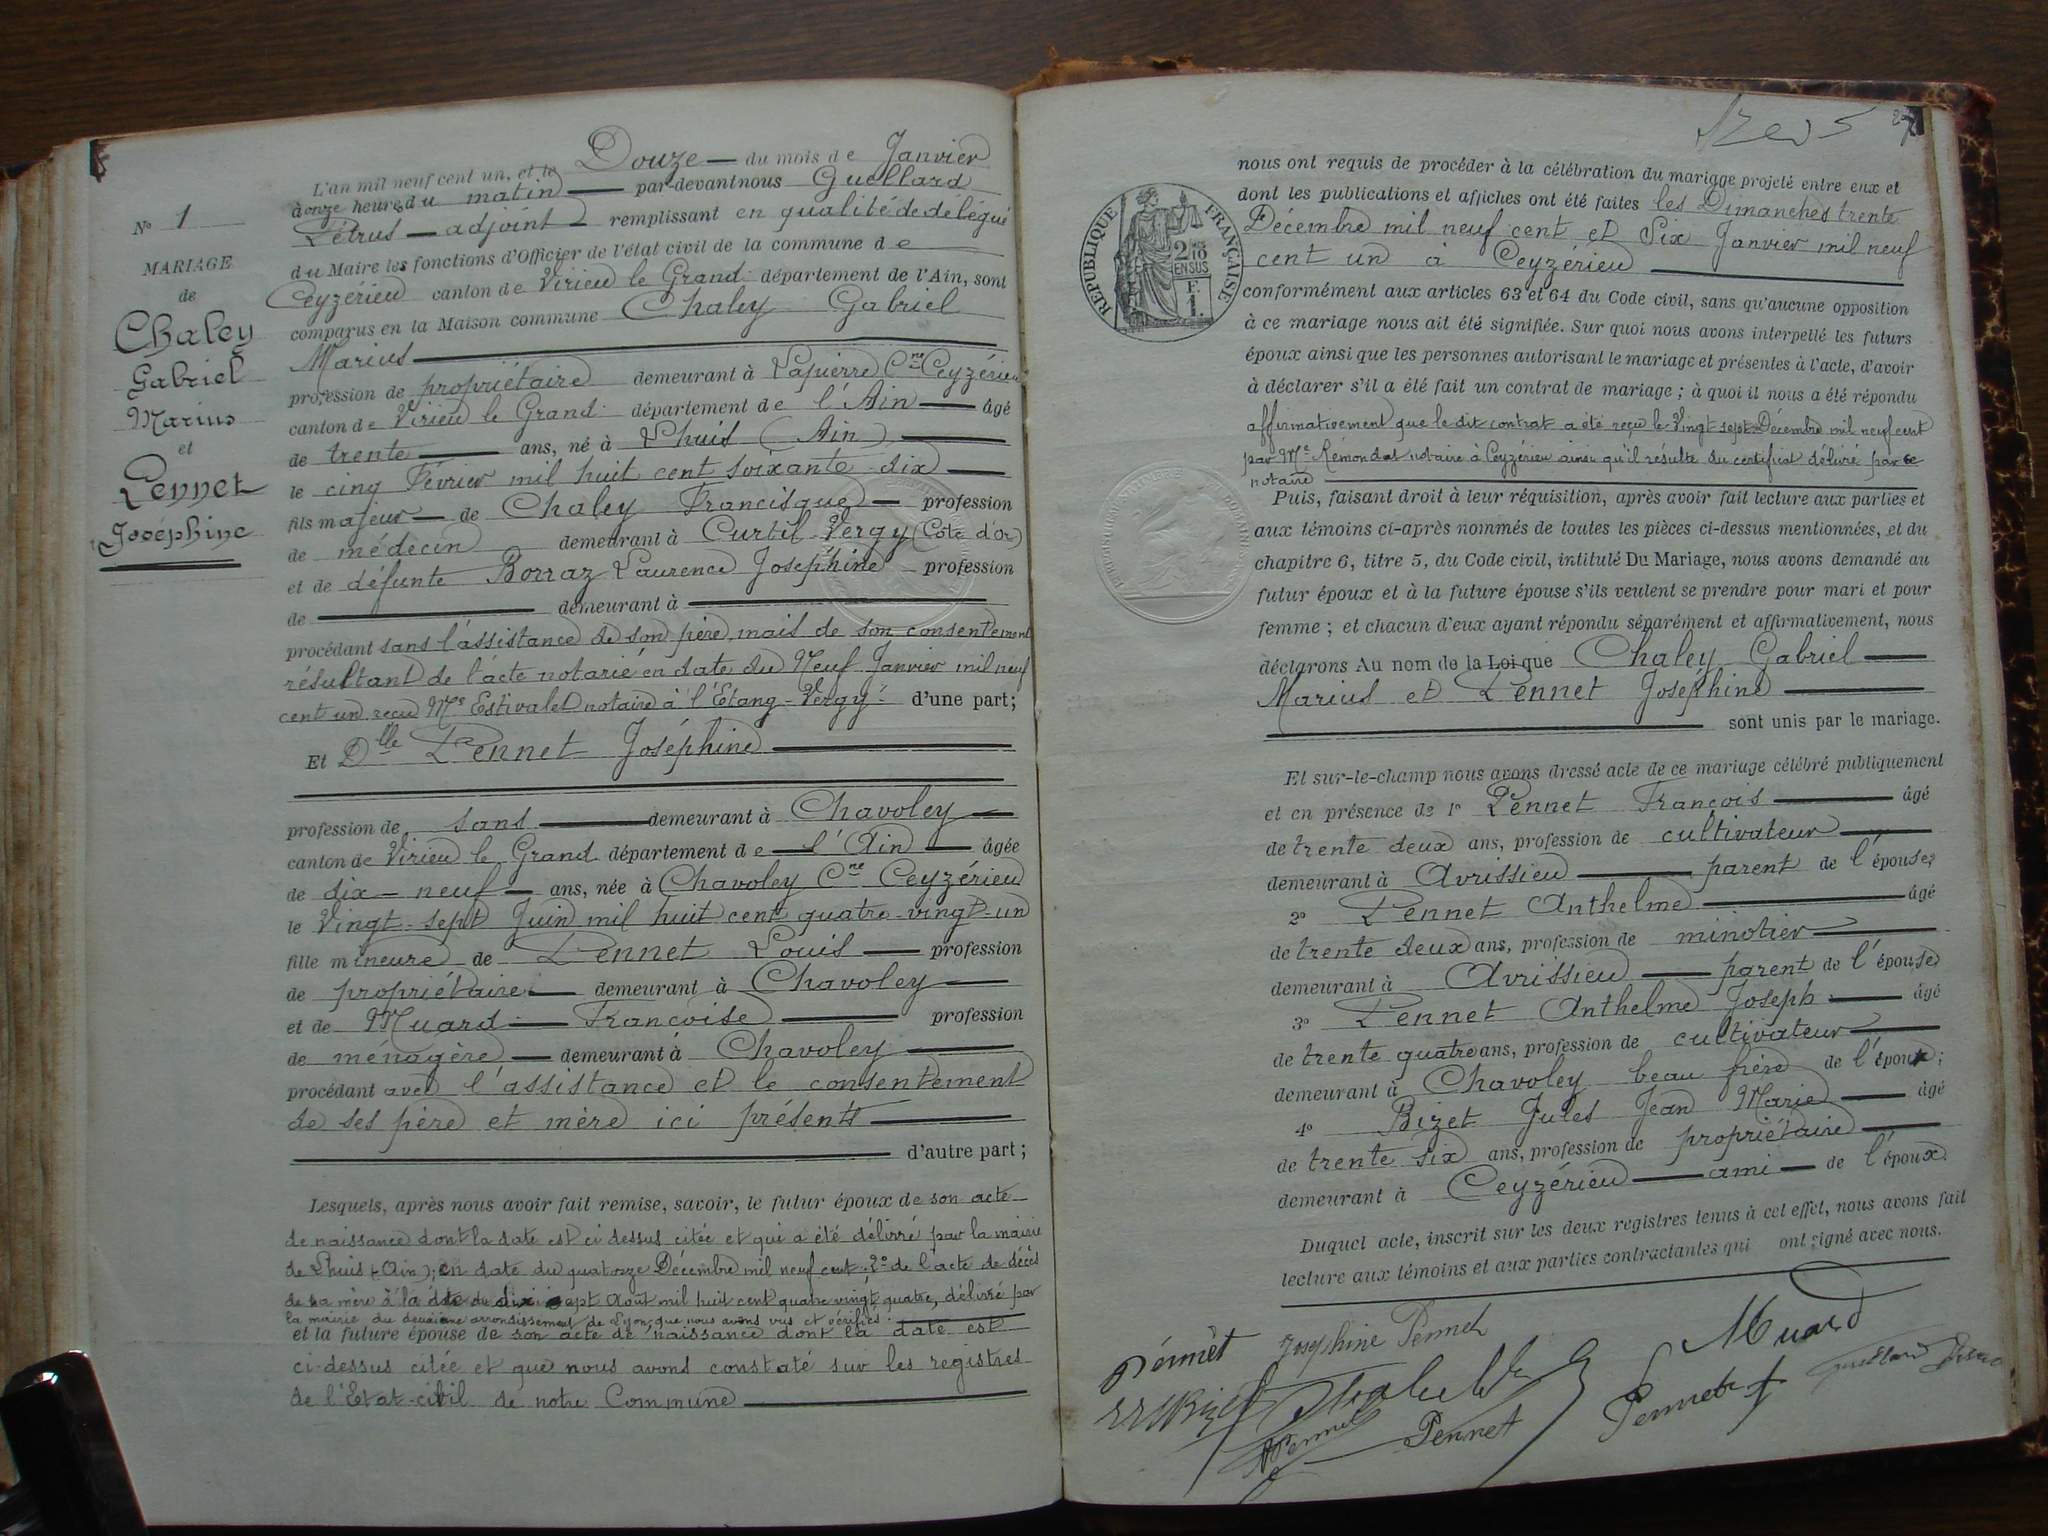 L'an mil neuf cent un, et le Douze du mois de Janvier
à onze heures du matin par-devant nous Guellard
Pétrus adjoint remplissant en qualité de délégué
du Maire les fonctions d'Officier de l'état civil de la commune de
Ceyzérieu canton de Virieu le Grand département de l'Ain, sont
comparus en la Maison commune Chaley Gabriel
Marius
profession de propriétaire demeurant à Lapierre Cne Ceyzérieu
canton de Virieu le Grand département de l'Ain âgé
de trente ans, né à Lhuis (Ain)
le cinq Février mil huit cent soixante dix
fils majeur de Chaley Francisque profession
de médecin demeurant à Curtil Vergy (Côte d'or)
et de défunte Borraz Laurence Joséphine profession
de demeurant à
procédant sans l'assistance de son père, mais de son consentement
résultant de l'acte notarié en date du Neuf Janvier mil neuf
cent un reçu Me Estivalet notaire à l'Etang-Vergy d'une part;
Et Dlle Pennet Joséphine
profession de sans demeurant à Chavoley
canton de Virieu le Grand département de l'Ain âgée
de dix-neuf ans, née à Chavoley Cne Ceyzérieu
le Vingt-sept Juin mil huit cent quatre-vingt-un
fille mineure de Pennet Louis profession
de propriétaire demeurant à Chavoley
et de Muard Françoise profession
de ménagère demeurant à Chavoley
procédant avec l'assistance et le consentement
de ses père et mère ici présents
d'autre part;
Lesquels, après nous avoir fait remise, savoir, le futur époux de son acte
de naissance dont la date est ci dessus citée et qui a été délivré par la mairie
de Lhuis (Ain), en date du quatorze Décembre mil neuf cent. 2° de l'acte de décès
de sa mère à la date du dix sept Août mil huit cent quatre vingt quatre, délivré par
la mairie du deuxième arrondissement de Lyon, que nous avons vus et vérifiés
et la future épouse de son acte de naissance dont la date est
ci-dessus citée et que nous avons constaté sur les registres
de l'Etat-civil de notre Commune
No 1
MARIAGE
de
Chaley
Gabriel
Marius
et
Pennet
Joséphine
nous ont requis de procéder à la célébration du mariage projeté entre eux et
dont les publications et affiches ont été faites les Dimanches trente
Décembre mil neuf cent et Six Janvier mil neuf
cent un à Ceyzérieu
conformément aux articles 63 et 64 du Code civil, sans qu'aucune opposition
à ce mariage nous ait été signifiée. Sur quoi nous avons interpellé les futurs
époux ainsi que les personnes autorisant le mariage et présentes à l'acte, d'avoir
à déclarer s'il a été fait un contrat de mariage; à quoi il nous a été répondu
affirmativement que le dit contrat a été reçu le Vingt sept Décembre mil neuf cent
par Me Rémondat notaire à Ceyzérieu ainsi qu'il résulte du certificat délivré par ce
notaire
Puis, faisant droit à leur réquisition, après avoir fait lecture aux parties et
aux témoins ci-après nommés de toutes les pièces ci-dessus mentionnées, et du
chapitre 6, titre 5, du Code civil, intitulé Du Mariage, nous avons demandé au
futur époux et à la future épouse s'ils veulent se prendre pour mari et pour
femme; et chacun d'eux ayant répondu séparément et affirmativement, nous
déclarons Au nom de la Loi que Chaley Gabriel
Marius et Pennet Joséphine
sont unis par le mariage.
Et sur-le-champ nous avons dressé acte de ce mariage célébré publiquement
et en présence de 1° Pennet François âgé
de trente deux ans, profession de cultivateur
demeurant à Avrissieu parent de l'épouse;
2° Pennet Anthelme âgé
de trente deux ans, profession de minotier
demeurant à Avrissieu parent de l'épouse
3° Pennet Anthelme Joseph âgé
de trente quatre ans, profession de cultivateur
demeurant à Chavoley beau frère de l'époux;
4° Bizet Jules Jean Marie âgé
de trente six ans, profession de propriétaire
demeurant à Ceyzérieu ami de l'époux
Duquel acte, inscrit sur les deux registres tenus à cet effet, nous avons fait
lecture aux témoins et aux parties contractantes qui ont signé avec nous.
Pennet Joséphine Pennet Muard
Pennet Pennet
RÉPUBLIQUE FRANÇAISE
2/10
EN SUS
F.
1.